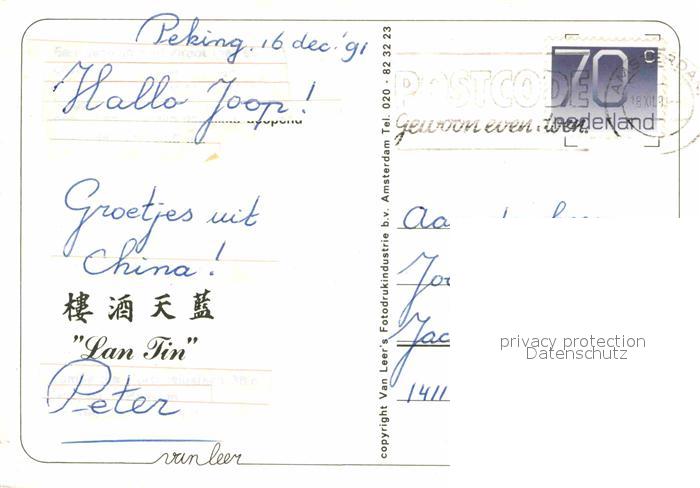 Peking, 16 dec. '91
Hallo Joop!
Groetjes uit
China!
樓酒天藍
"Lan Tin"
Peter
van leer
copyright Van Leer's Fotodrukindustrie b.v. Amsterdam Tel. 020 - 82 32 23
POSTCODE
gewoon even
70 c
nederland
Aa
Jo
Jac
1411
privacy protection
Datenschutz